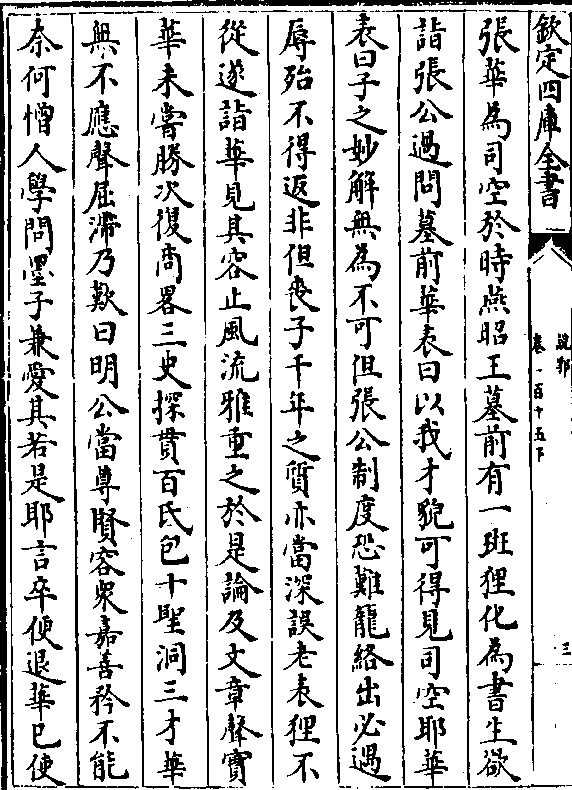 欽定四庫全書
說郛
卷一百十五下
三
張華為司空於時燕昭王墓前有一斑狸化為書生欲
詣張公過問墓前華表曰以我才貌可得見司空耶華
表曰子之妙解無為不可但張公制度恐難籠絡出必遇
辱殆不得返非但喪子千年之質亦當深誤老表狸不
從遂詣華見其容止風流雅重之於是論及文章聲實
華未嘗勝次復商畧三史探貫百氏包十聖洞三才華
無不應聲屈滯乃歎曰明公當尊賢容衆嘉善矜不能
奈何憎人學問墨子兼愛其若是耶言卒便退華已使